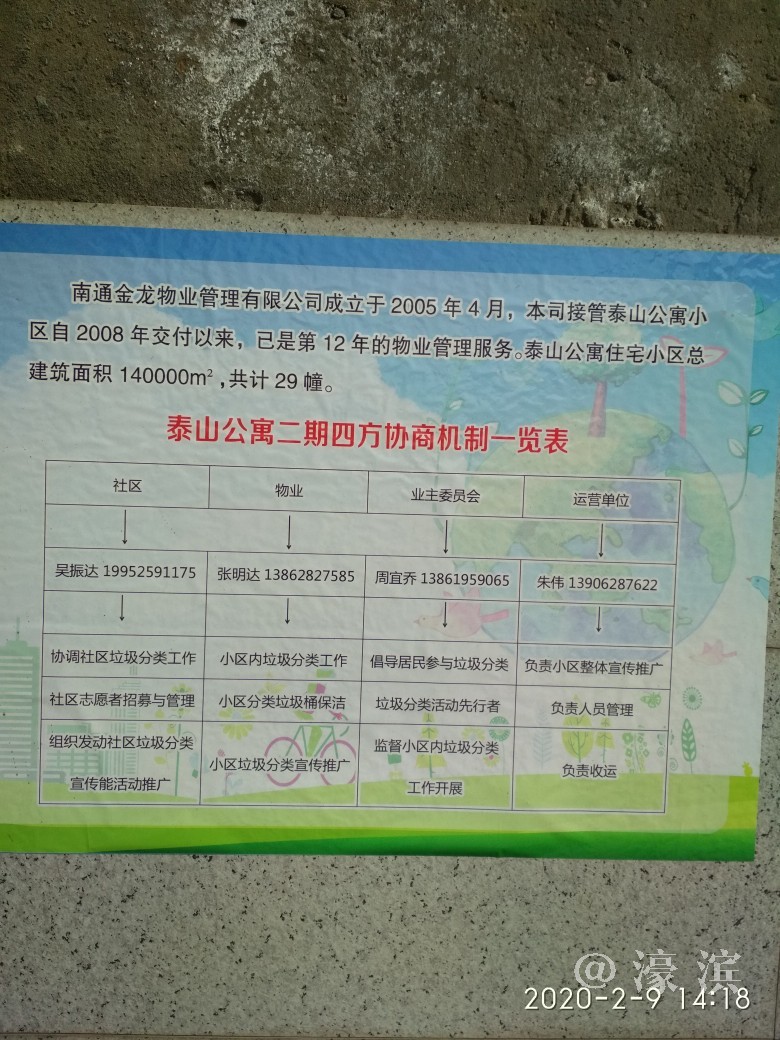 南通金龙物业管理有限公司成立于 2005 年 4 月，本司接管泰山公寓小
区自 2008 年交付以来，已是第 12 年的物业管理服务。泰山公寓住宅小区总
建筑面积 140000m²，共计 29 幢。
泰山公寓二期四方协商机制一览表
社区 物业 业主委员会 运营单位
↓ ↓ ↓ ↓
吴振达 19952591175 张明达 13862827585 周宜乔 13861959065 朱伟 13906287622
↓ ↓ ↓ ↓
协调社区垃圾分类工作 小区内垃圾分类工作 倡导居民参与垃圾分类 负责小区整体宣传推广
社区志愿者招募与管理 小区分类垃圾桶保洁 垃圾分类活动先行者 负责人员管理
组织发动社区垃圾分类 小区垃圾分类宣传推广 监督小区内垃圾分类 负责收运
宣传能活动推广 工作开展
@濠滨
2020-2-9 14:18